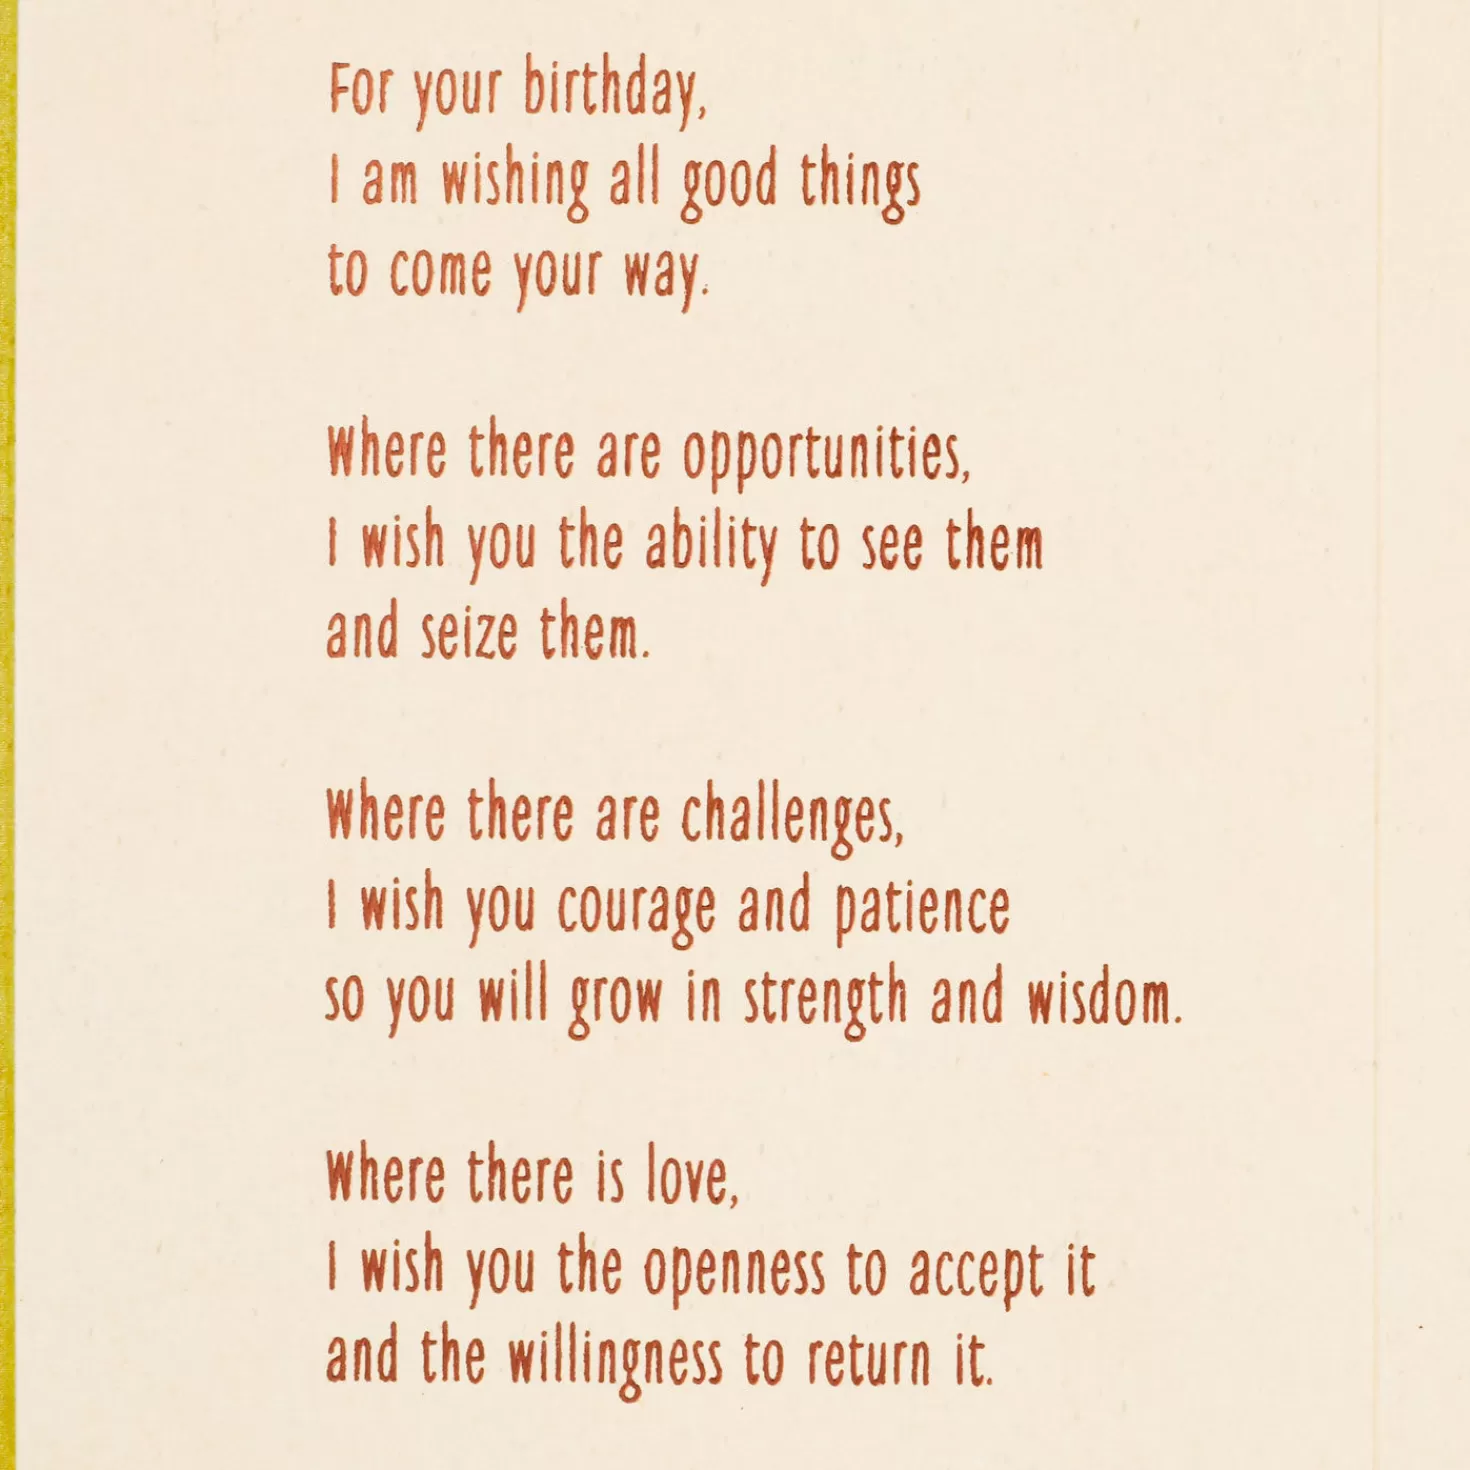 For your birthday,
I am wishing all good things
to come your way.
Where there are opportunities,
I wish you the ability to see them
and seize them.
Where there are challenges,
I wish you courage and patience
so you will grow in strength and wisdom.
Where there is love,
I wish you the openness to accept it
and the willingness to return it.